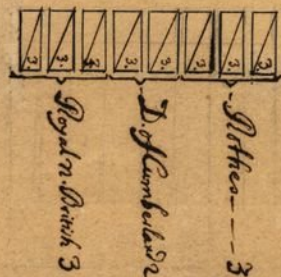 3. 3. 3 3. 3. 3. 3
Royal n. British 3
D. of Cumberland 2
Rothes --- 3